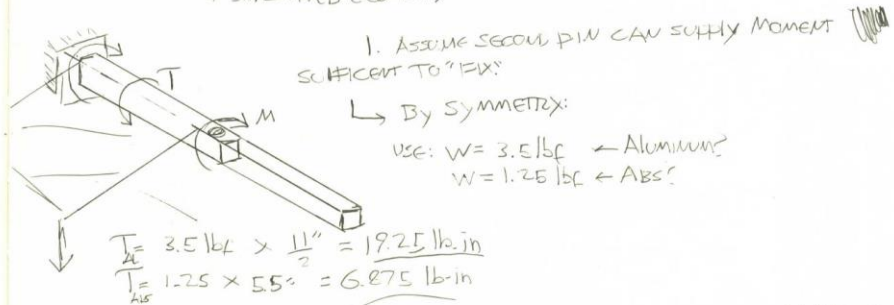 1. ASSUME SECOND PIN CAN SUPPLY MOMENT
SUFFICENT TO "FIX."
↳ By SYMMETRY:
USE: W = 3.5 lbf ← ALUMINUM?
W = 1.25 lbf ← ABS?
T
M
T_AL = 3.5 lbf × 11"/2 = 19.25 lb-in
T_ABS = 1.25 × 5.5" = 6.875 lb-in